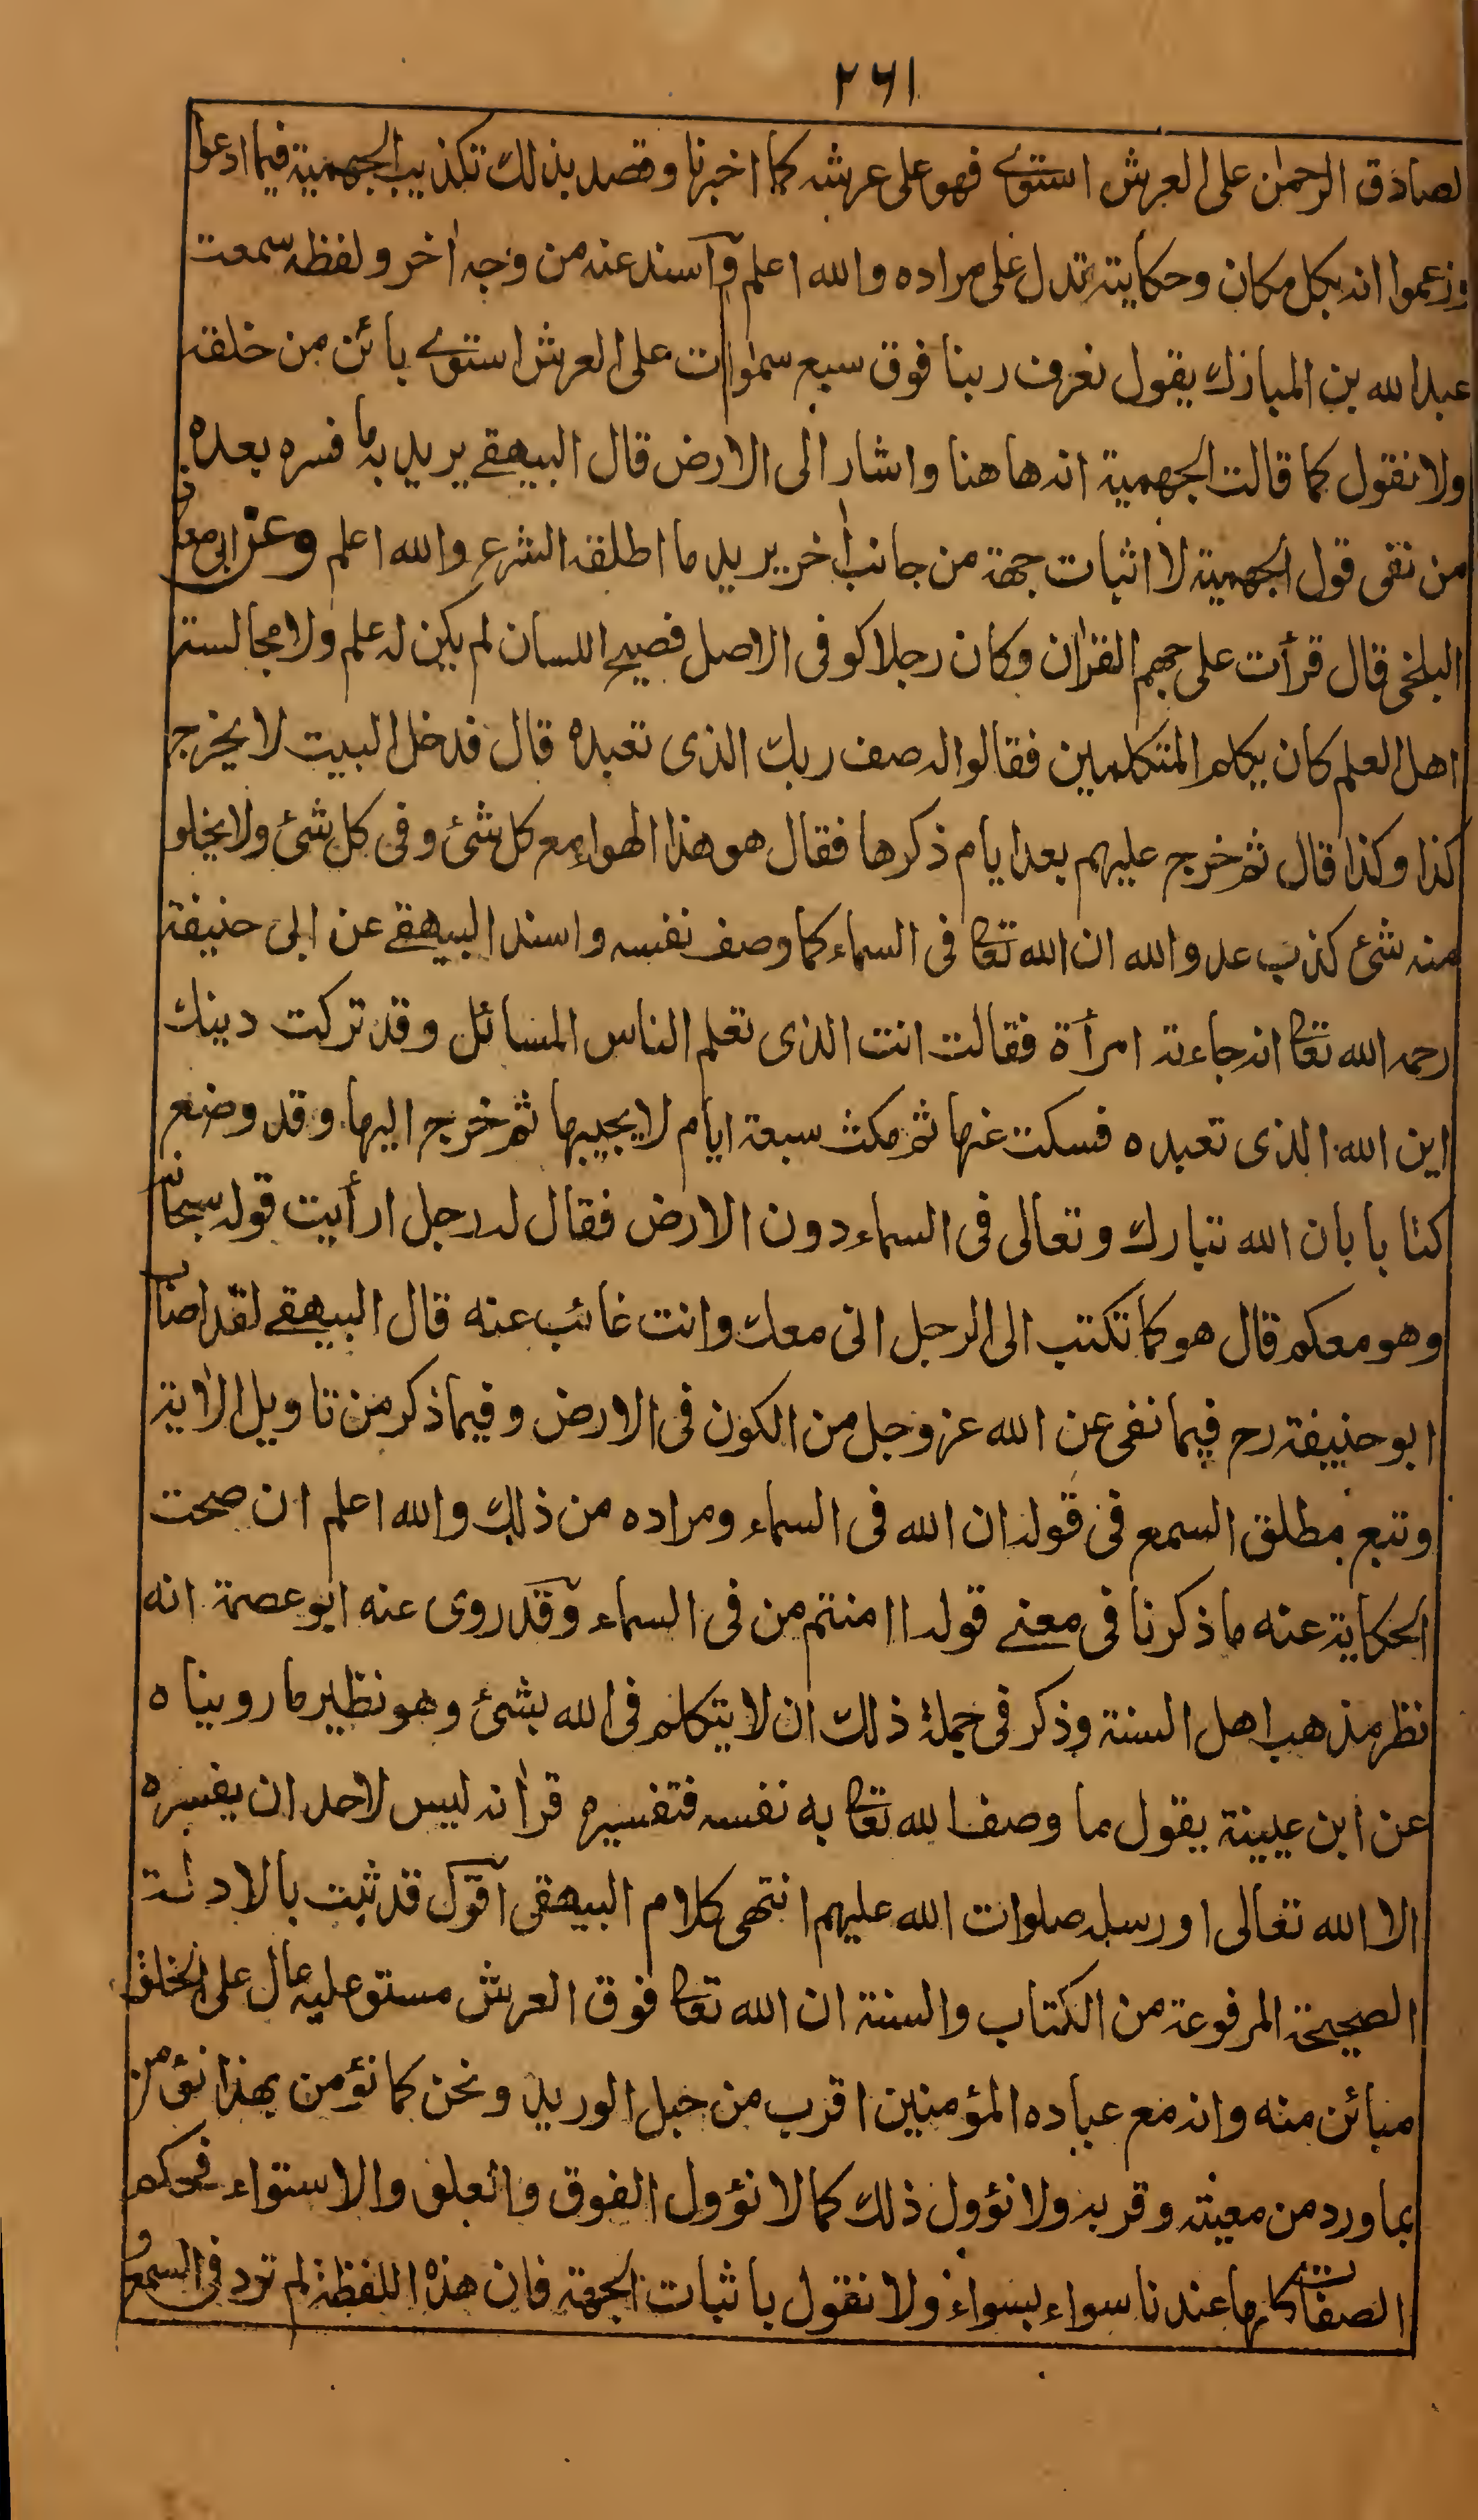 ٢٦١
لصادق الرحمٰن على العرش استوے فهو على عرشه كما اخبرنا وقصد بذلك تكذيب الجهمية فيما ادعوا
وزعموا انه بكل مكان وحكايته تدل على مراده والله اعلم وآسند عنه من وجه اٰخر ولفظه سمعت
عبد الله بن المبارك يقول نعرف ربنا فوق سبع سمٰوات على العرش استوے بائن من خلقه
ولا نقول كما قالت الجهمية انه هاهنا واشار الى الارض قال البيهقے يريد به ما فسره بعده
من نفى قول الجهمية لا اثبات جهة من جانب اٰخر يريد ما اطلقه الشرع والله اعلم وعن ابى معاذ
البلخى قال قرأت على جهم القراٰن وكان رجلا كوفى الاصل فصيح اللسان لم يكن له علم ولا مجالسة
اهل العلم كان يكلم المتكلمين فقالوا له صف ربك الذى تعبده قال فدخل البيت لا يخرج
كذا وكذا قال ثم خرج عليهم بعد ايام ذكرها فقال هو هذا الهواء مع كل شئ وفى كل شئ ولا يخلو
منه شئ كذب عدو الله ان الله تعا فى السماء كما وصف نفسه واسند البيهقے عن ابى حنيفة
رحمه الله تعا انه جاءته امرأة فقالت انت الذى تعلم الناس المسائل وقد تركت دينك
اين الله الذى تعبده فسكت عنها ثم مكث سبعة ايام لا يجيبها ثم خرج اليها وقد وضع
كتابا بان الله تبارك وتعالى فى السماء دون الارض فقال له رجل ارأيت قوله سبحانه
وهو معكم قال هو كما تكتب الى الرجل انى معك وانت غائب عنه قال البيهقے لقد اصاب
ابو حنيفة رح فيما نفى عن الله عز وجل من الكون فى الارض وفيما ذكر من تاويل الاٰية
وتبع مطلق السمع فى قوله ان الله فى السماء ومراده من ذلك والله اعلم ان صحت
الحكاية عنه ما ذكرنا فى معنے قوله اامنتم من فى السماء وقد روى عنه ابو عصمة انه
نظر مذهب اهل السنة وذكر فى جملة ذلك ان لا يتكلم فى الله بشئ وهو نظير ما رويناه
عن ابن عيينة يقول ما وصف الله تعا به نفسه فتفسيره قراٰته ليس لاحد ان يفسره
الا الله تعالى او رسله صلوات الله عليهم انتهى كلام البيهقى آقول قد ثبت بالادلة
الصحيحة المرفوعة من الكتاب والسنة ان الله تعا فوق العرش مستو عليه عال على الخلق
مبائن منه وانه مع عباده المؤمنين اقرب من حبل الوريد ونحن كما نؤمن بهذا نؤمن
بما ورد من معيته وقربه ولا نؤول ذلك كما لا نؤول الفوق والعلو والاستواء فحكم
الصفات كلها عندنا سواء بسواء ولا نقول باثبات الجهة فان هذه اللفظة لم ترد فى السمع و